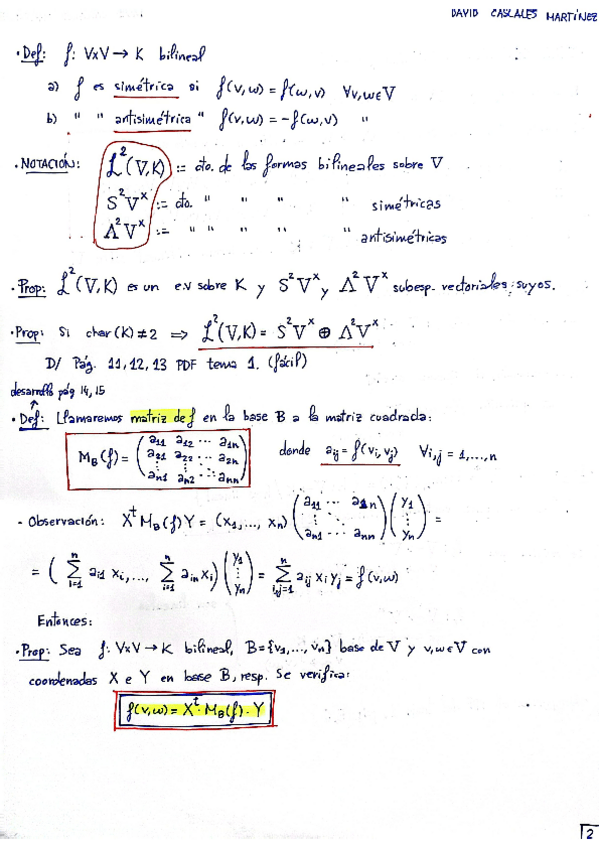 DAVID CASCALES MARTÍNEZ
· Def: f: V×V → K bilineal
a) f es simétrica si f(v,w) = f(w,v) ∀v,w∈V
b) " " antisimétrica " f(v,w) = -f(w,v) "
· NOTACIÓN: L²(V,K) := cto. de las formas bilineales sobre V
S²V^x := cto. " " " " simétricas
Λ²V^x := " " " " " antisimétricas
· Prop: L²(V,K) es un e.v sobre K y S²V^x y Λ²V^x subesp. vectoriales suyos.
· Prop: Si char(K)≠2 ⟹ L²(V,K) = S²V^x ⊕ Λ²V^x
D/ Pág. 11,12,13 PDF tema 1. (fácil)
desarrollo pág 14,15
· Def: Llamaremos matriz de f en la base B a la matriz cuadrada:
M_B(f) = ( a11 a12 ... a1n
a21 a22 ... a2n
an1 an2 ... ann ) donde aij = f(vi,vj) ∀i,j = 1,...,n
· Observación: X^t M_B(f) Y = (x1,..., xn) ( a11 ... a1n ⋮ ⋱ ⋮ an1 ... ann ) ( y1 ⋮ yn ) =
= ( Σ_{i=1}^n ai1 xi,..., Σ_{i=1}^n ain xi ) ( y1 ⋮ yn ) = Σ_{i,j=1}^n aij xi yj = f(v,w)
Entonces:
· Prop: Sea f: V×V → K bilineal, B={v1,...,vn} base de V y v,w∈V con
coordenadas X e Y en base B, resp. Se verifica:
f(v,w) = X^t · M_B(f) · Y
2